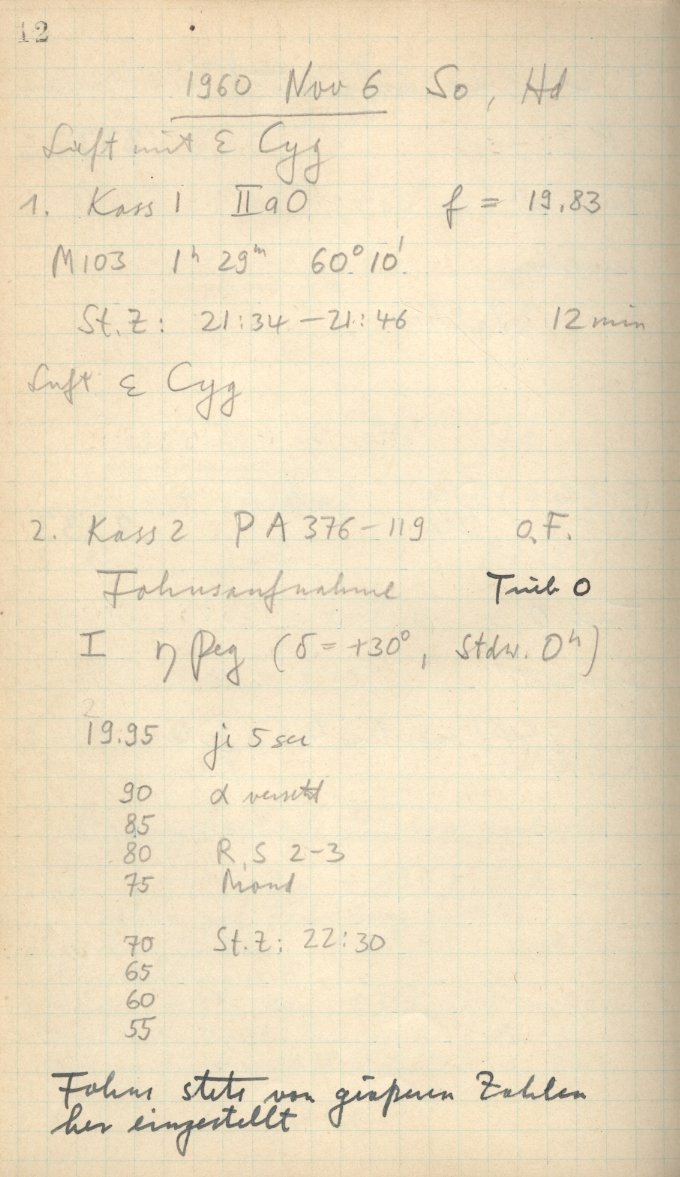 12
1960 Nov 6 So, Hd
Luft mit ε Cyg
1. Kass 1 IIaO f = 19.83
M103 1ʰ 29ᵐ 60° 10'
St.Z: 21:34 – 21:46 12 min
Luft ε Cyg
2. Kass 2 PA 376-119 o.F.
Fokusaufnahme Trieb 0
I η Peg (δ = +30°, Stdw. 0ʰ)
19.95 je 5 sec
90 α versetzt
85
80 R, S 2-3
75 Mond
70 St.Z: 22:30
65
60
55
Fokus stets von größeren Zahlen
her eingestellt